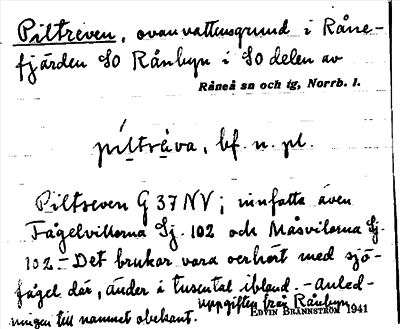 Piltreven, ovanvattensgrund i Råne-
fjärden SO Rånbyn i SO delen av
Råneå sn och tg, Norrb. l.
piltréva, bf. n. pl.
Piltreven G 37 NV; innfatta även
Fågelvillorna Sj. 102 och Måsvillorna Sj.
102. – Det brukar vara oerhört med sjö-
fågel där, änder i tusental ibland. – Anled-
ningen till namnet obekant. uppgiften från Rånbyn
EDVIN BRÄNNSTRÖM 1941